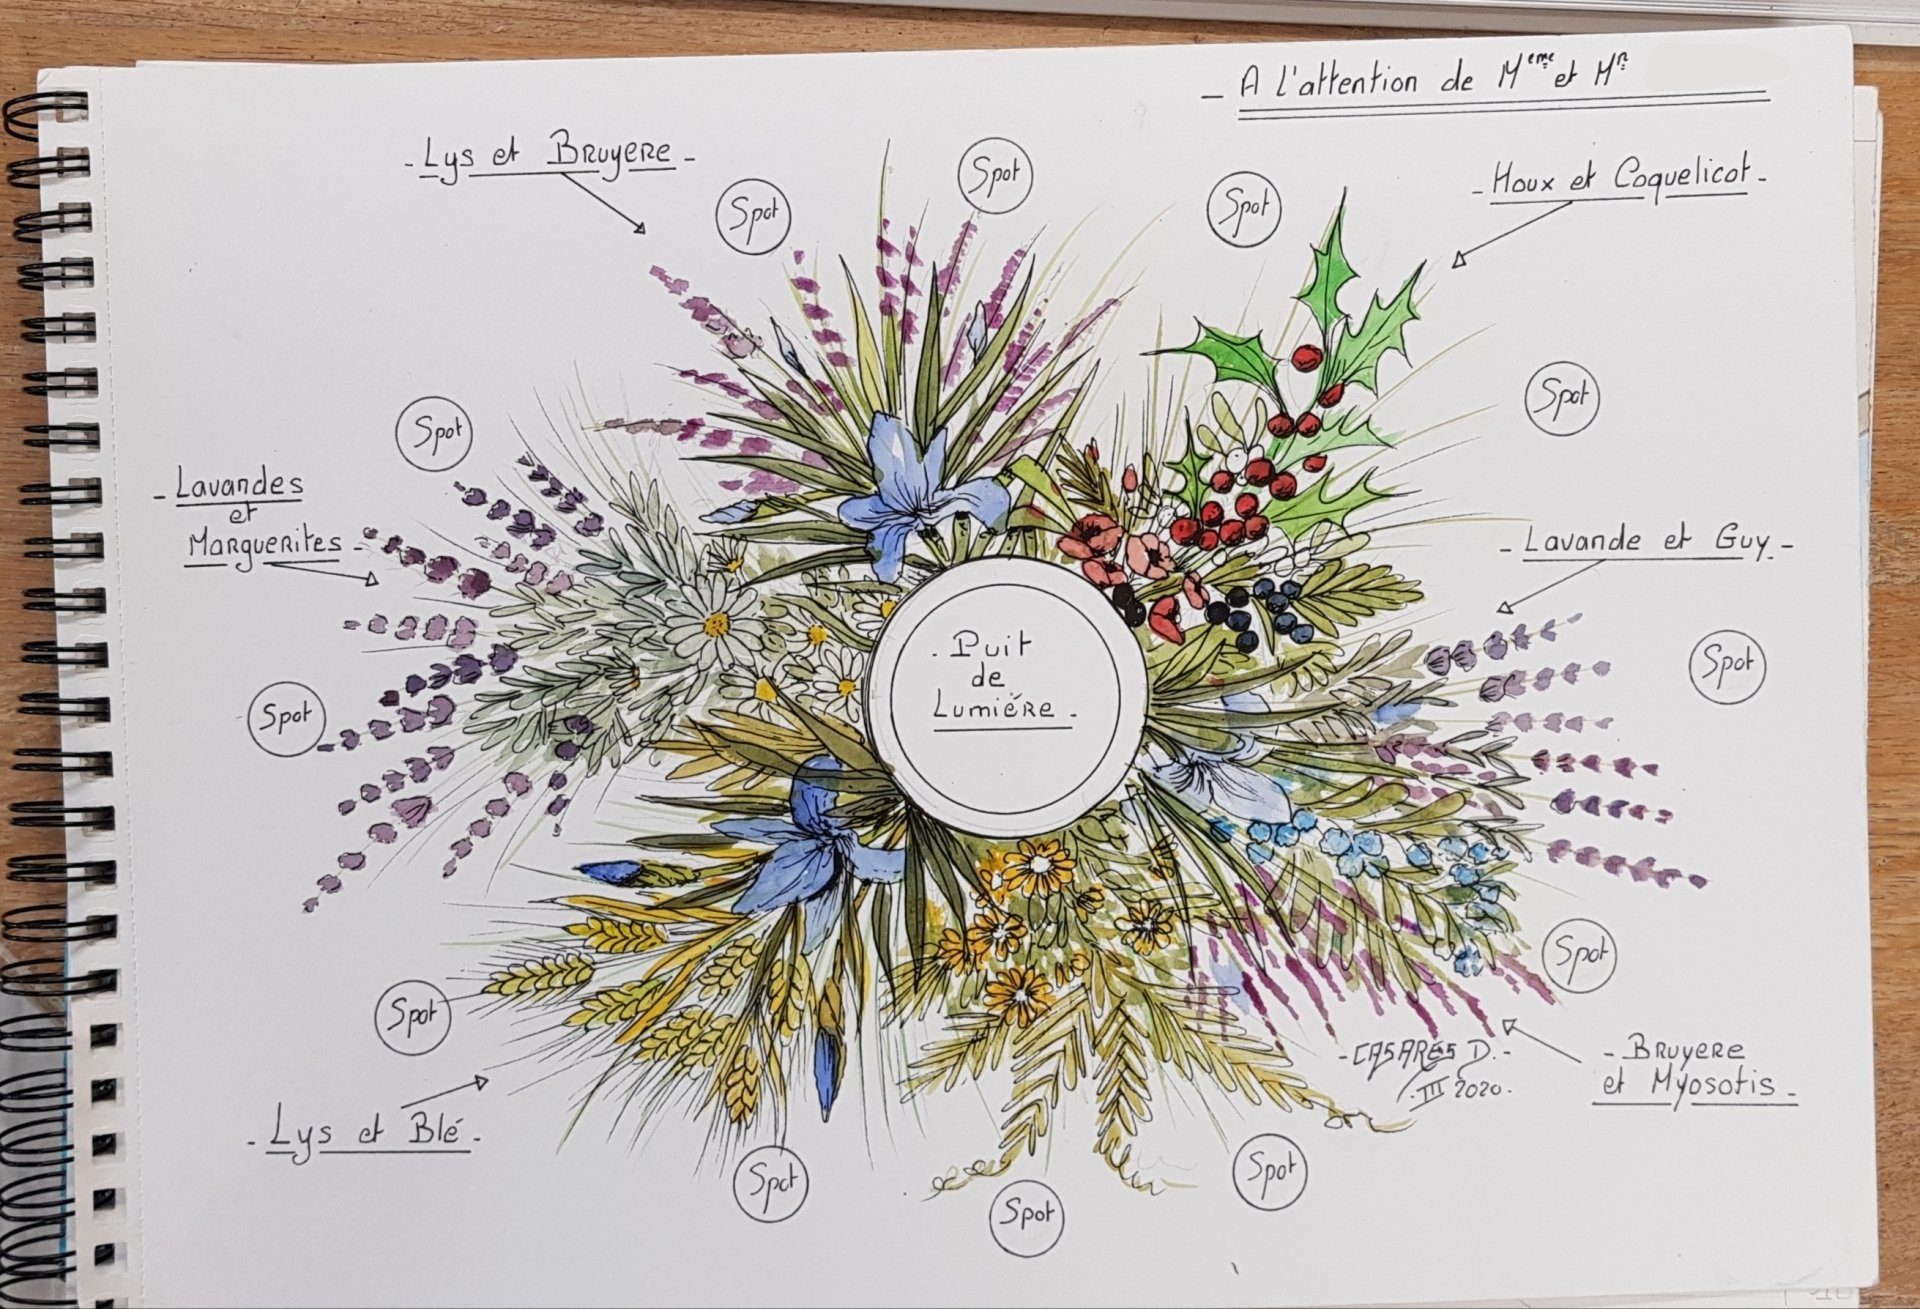 - A l'attention de Mᵉᵐᵉ et Mʳ
- Lys et Bruyere -
Spot
Spot
Spot
- Houx et Coquelicot -
Spot
Spot
- Lavandes
et
Marguerites -
- Lavande et Guy -
. Puit
de
Lumiére -
Spot
Spot
Spot
Spot
- CASARES D. -
III 2020.
- Bruyere
et Myosotis -
- Lys et Blé -
Spot
Spot
Spot